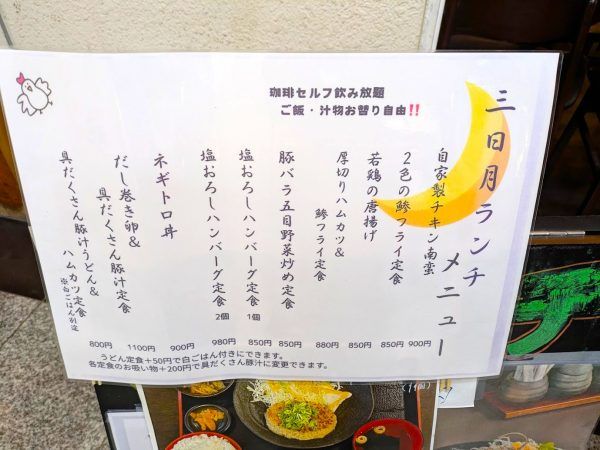 三日月ランチ
メニュー
珈琲セルフ飲み放題
ご飯・汁物お替り自由!!
自家製チキン南蛮
900円
2色の鯵フライ定食
850円
若鶏の唐揚げ
850円
厚切りハムカツ&
鯵フライ定食
880円
豚バラ五目野菜炒め定食
850円
塩おろしハンバーグ定食
1個
850円
塩おろしハンバーグ定食
2個
980円
ネギトロ丼
900円
だし巻き卵&
具だくさん豚汁定食
1100円
具だくさん豚汁うどん&
ハムカツ定食
※白ごはん別途
800円
うどん定食+50円で白ごはん付きにできます。
各定食のお吸い物+200円で具だくさん豚汁に変更できます。